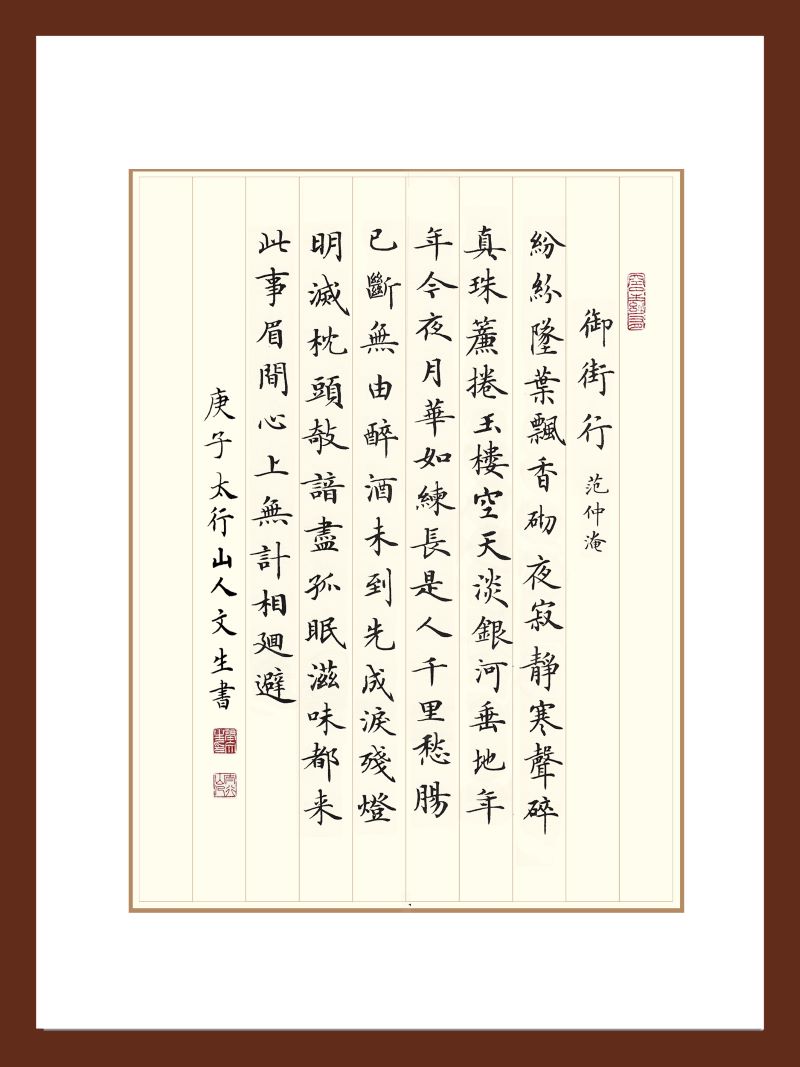 御街行 范仲淹
紛紛墜葉飄香砌夜寂靜寒聲碎
真珠簾捲玉樓空天淡銀河垂地年
年今夜月華如練長是人千里愁腸
已斷無由醉酒未到先成淚殘燈
明滅枕頭攲諳盡孤眠滋味都来
此事眉間心上無計相迴避
庚子太行山人文生書